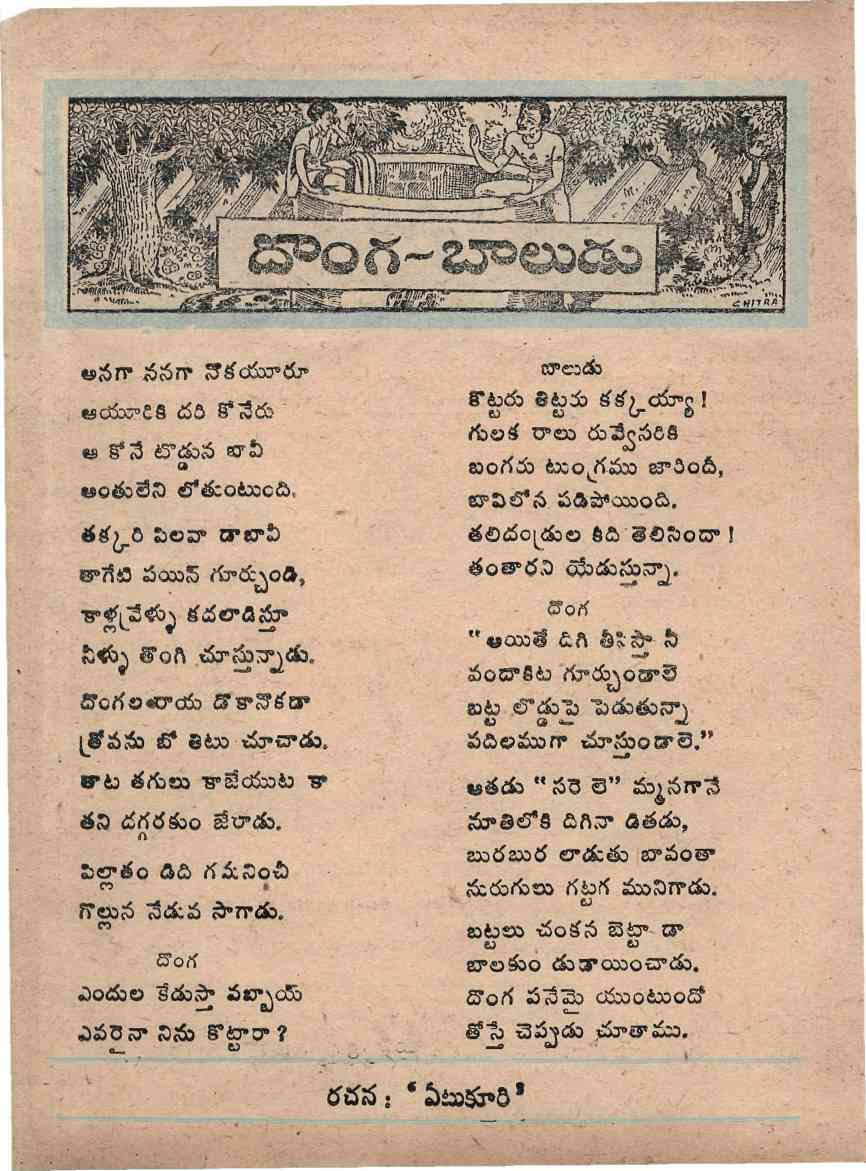 దొంగ-బాలుడు
CHITRA
అనగా ననగా నొకయూరూ
ఆయూరికి దరి కోనేరు
ఆ కోనే టొడ్డున బావీ
అంతులేని లోతుంటుంది.
తక్కరి పిలవా డాబావీ
తాగేటి పయిన్ గూర్చుండి,
కాళ్లవేళ్ళు కదలాడిస్తూ
నీళ్ళు తొంగి చూస్తున్నాడు.
దొంగలరాయ డొకానొకడా
త్రోవను బో తిటు చూచాడు.
తాట తగులు కాజేయుట కా
తని దగ్గరకుం జేరాడు.
పిల్లాతం డిది గమనించీ
గొల్లున నేడువ సాగాడు.
దొంగ
ఎందుల కేడుస్తా వబ్బాయ్
ఎవరైనా నిను కొట్టారా ?
బాలుడు
కొట్టరు తిట్టరు కక్కయ్యా !
గులక రాలు రువ్వేసరికి
బంగరు టుంగ్రము జారిందీ,
బావిలోన పడిపోయింది.
తలిదండ్రుల కిది తెలిసిందా !
తంతారని యేడుస్తున్నా.
దొంగ
" అయితే దిగి తీసిస్తా నీ
వందాకిట గూర్చుండాలె
బట్ట లొడ్డుపై పెడుతున్నా
పదిలముగా చూస్తుండాలె."
ఆతడు " సరె లె" మ్మనగానే
నూతిలోకి దిగినా డితడు,
బురబుర లాడుతు బావంతా
నురుగులు గట్టగ మునిగాడు.
బట్టలు చంకన బెట్టా డా
బాలకుం డుడాయించాడు.
దొంగ పనేమై యుంటుందో
తోస్తే చెప్పుడు చూతాము.
రచన : ' ఏటుకూరి '